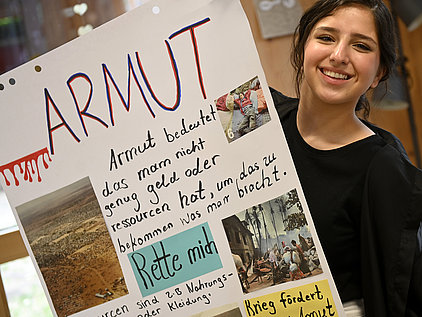 ARMUT
Armut bedeutet
das man nicht
genug geld oder
ressourcen hat, um das zu
bekommen was man bracht.
Rette mich
urcen sind z.B Nahrungs-
oder Kleidung
Krieg fördert
Armut